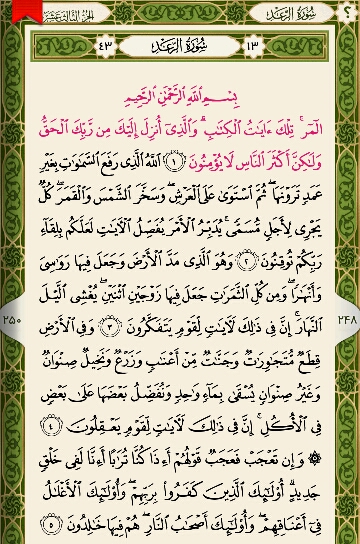 الجزء الثالث عشر
سُورَةُ الرَّعْدِ
؟
٤٣
سُورَةُ الرَّعْدِ
١٣
بِسْمِ اللَّهِ الرَّحْمَٰنِ الرَّحِيمِ
الٓمٓر ۚ تِلْكَ ءَايَٰتُ ٱلْكِتَٰبِ ۗ وَٱلَّذِىٓ أُنزِلَ إِلَيْكَ مِن رَّبِّكَ ٱلْحَقُّ
وَلَٰكِنَّ أَكْثَرَ ٱلنَّاسِ لَا يُؤْمِنُونَ ١ ٱللَّهُ ٱلَّذِى رَفَعَ ٱلسَّمَٰوَٰتِ بِغَيْرِ
عَمَدٍ تَرَوْنَهَا ۖ ثُمَّ ٱسْتَوَىٰ عَلَى ٱلْعَرْشِ ۖ وَسَخَّرَ ٱلشَّمْسَ وَٱلْقَمَرَ ۖ كُلٌّ
يَجْرِى لِأَجَلٍ مُّسَمًّى ۚ يُدَبِّرُ ٱلْأَمْرَ يُفَصِّلُ ٱلْءَايَٰتِ لَعَلَّكُم بِلِقَآءِ
رَبِّكُمْ تُوقِنُونَ ٢ وَهُوَ ٱلَّذِى مَدَّ ٱلْأَرْضَ وَجَعَلَ فِيهَا رَوَٰسِىَ
وَأَنْهَٰرًا ۖ وَمِن كُلِّ ٱلثَّمَرَٰتِ جَعَلَ فِيهَا زَوْجَيْنِ ٱثْنَيْنِ ۖ يُغْشِى ٱلَّيْلَ
٢٥٠
ٱلنَّهَارَ ۚ إِنَّ فِى ذَٰلِكَ لَءَايَٰتٍ لِّقَوْمٍ يَتَفَكَّرُونَ ٣ وَفِى ٱلْأَرْضِ
٢٤٨
قِطَعٌ مُّتَجَٰوِرَٰتٌ وَجَنَّٰتٌ مِّنْ أَعْنَٰبٍ وَزَرْعٌ وَنَخِيلٌ صِنْوَانٌ
وَغَيْرُ صِنْوَانٍ يُسْقَىٰ بِمَآءٍ وَٰحِدٍ وَنُفَضِّلُ بَعْضَهَا عَلَىٰ بَعْضٍ
فِى ٱلْأُكُلِ ۚ إِنَّ فِى ذَٰلِكَ لَءَايَٰتٍ لِّقَوْمٍ يَعْقِلُونَ ٤
۞ وَإِن تَعْجَبْ فَعَجَبٌ قَوْلُهُمْ أَءِذَا كُنَّا تُرَٰبًا أَءِنَّا لَفِى خَلْقٍ
جَدِيدٍ ۗ أُو۟لَٰٓئِكَ ٱلَّذِينَ كَفَرُوا۟ بِرَبِّهِمْ ۖ وَأُو۟لَٰٓئِكَ ٱلْأَغْلَٰلُ
فِىٓ أَعْنَاقِهِمْ ۖ وَأُو۟لَٰٓئِكَ أَصْحَٰبُ ٱلنَّارِ ۖ هُمْ فِيهَا خَٰلِدُونَ ٥